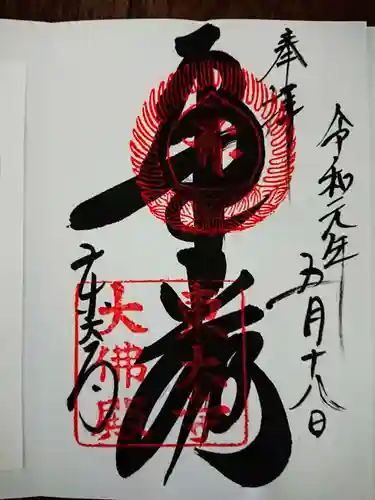 奉拝
令和元年
五月十八日
華厳
東大寺
東大寺
大佛殿